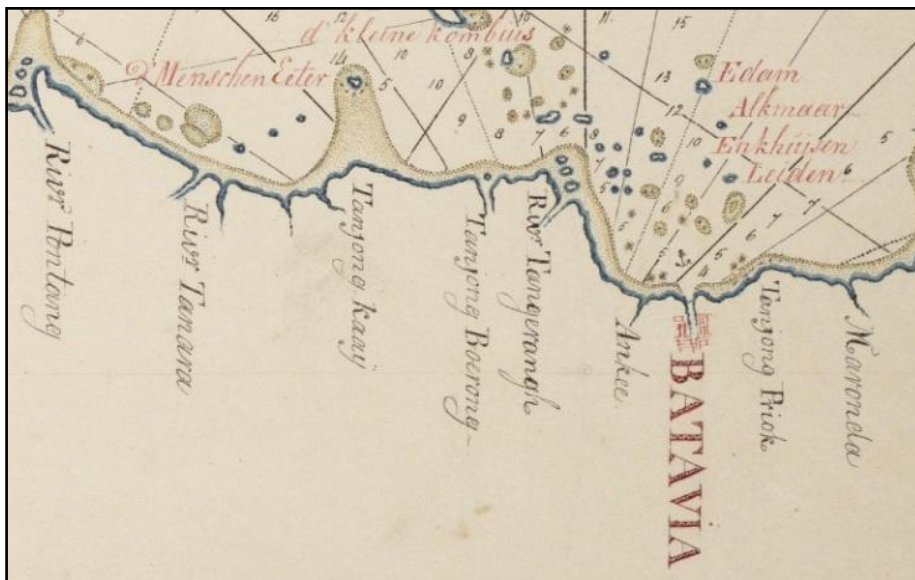 d' kleine kombuis
d' Menschen Eeter
Edam
Alkmaar
Enkhuijsen
Leiden
Rivr. Pontang
Rivr. Tanara
Tanjong kaaij
Tanjong Boerong
Rivr. Tangerangh
Ankee
BATAVIA
Tanjong Priok
Maronda